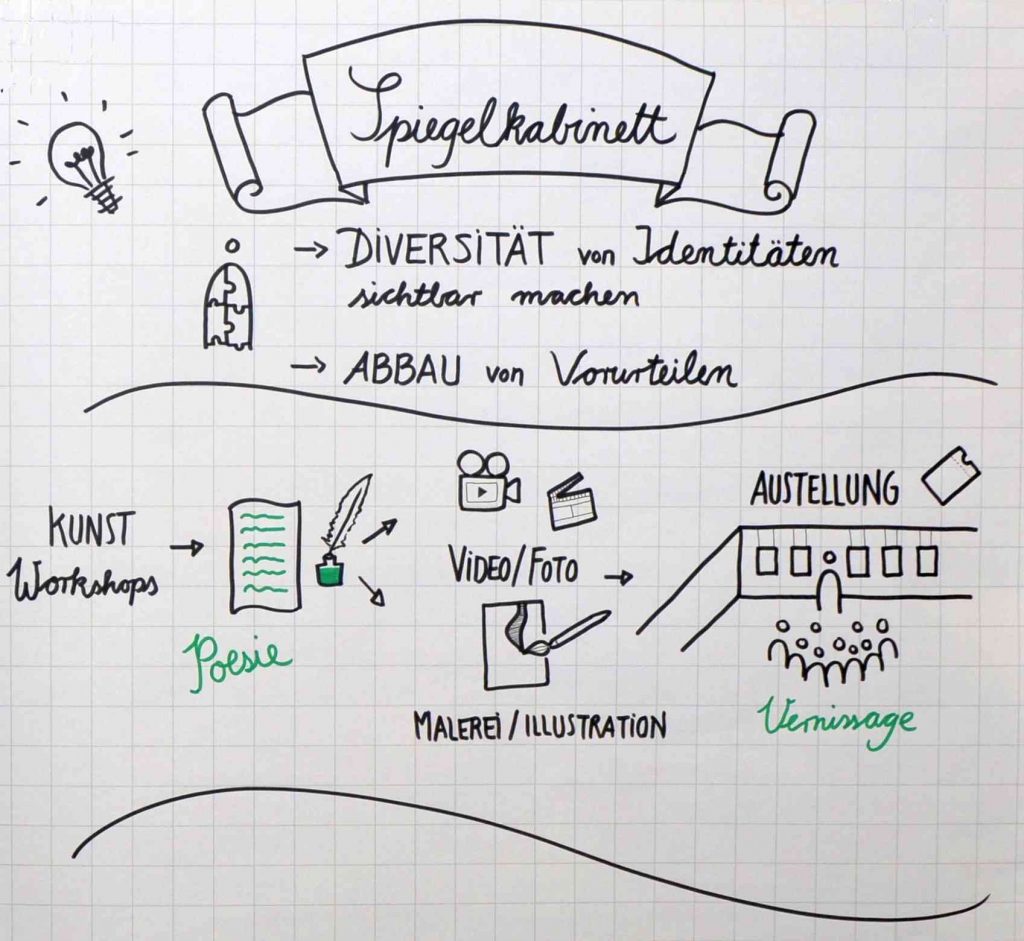 Spiegelkabinett
→ DIVERSITÄT von Identitäten
sichtbar machen
→ ABBAU von Vorurteilen
KUNST
Workshops
Poesie
VIDEO/FOTO
MALEREI/ILLUSTRATION
AUSTELLUNG
Vernissage